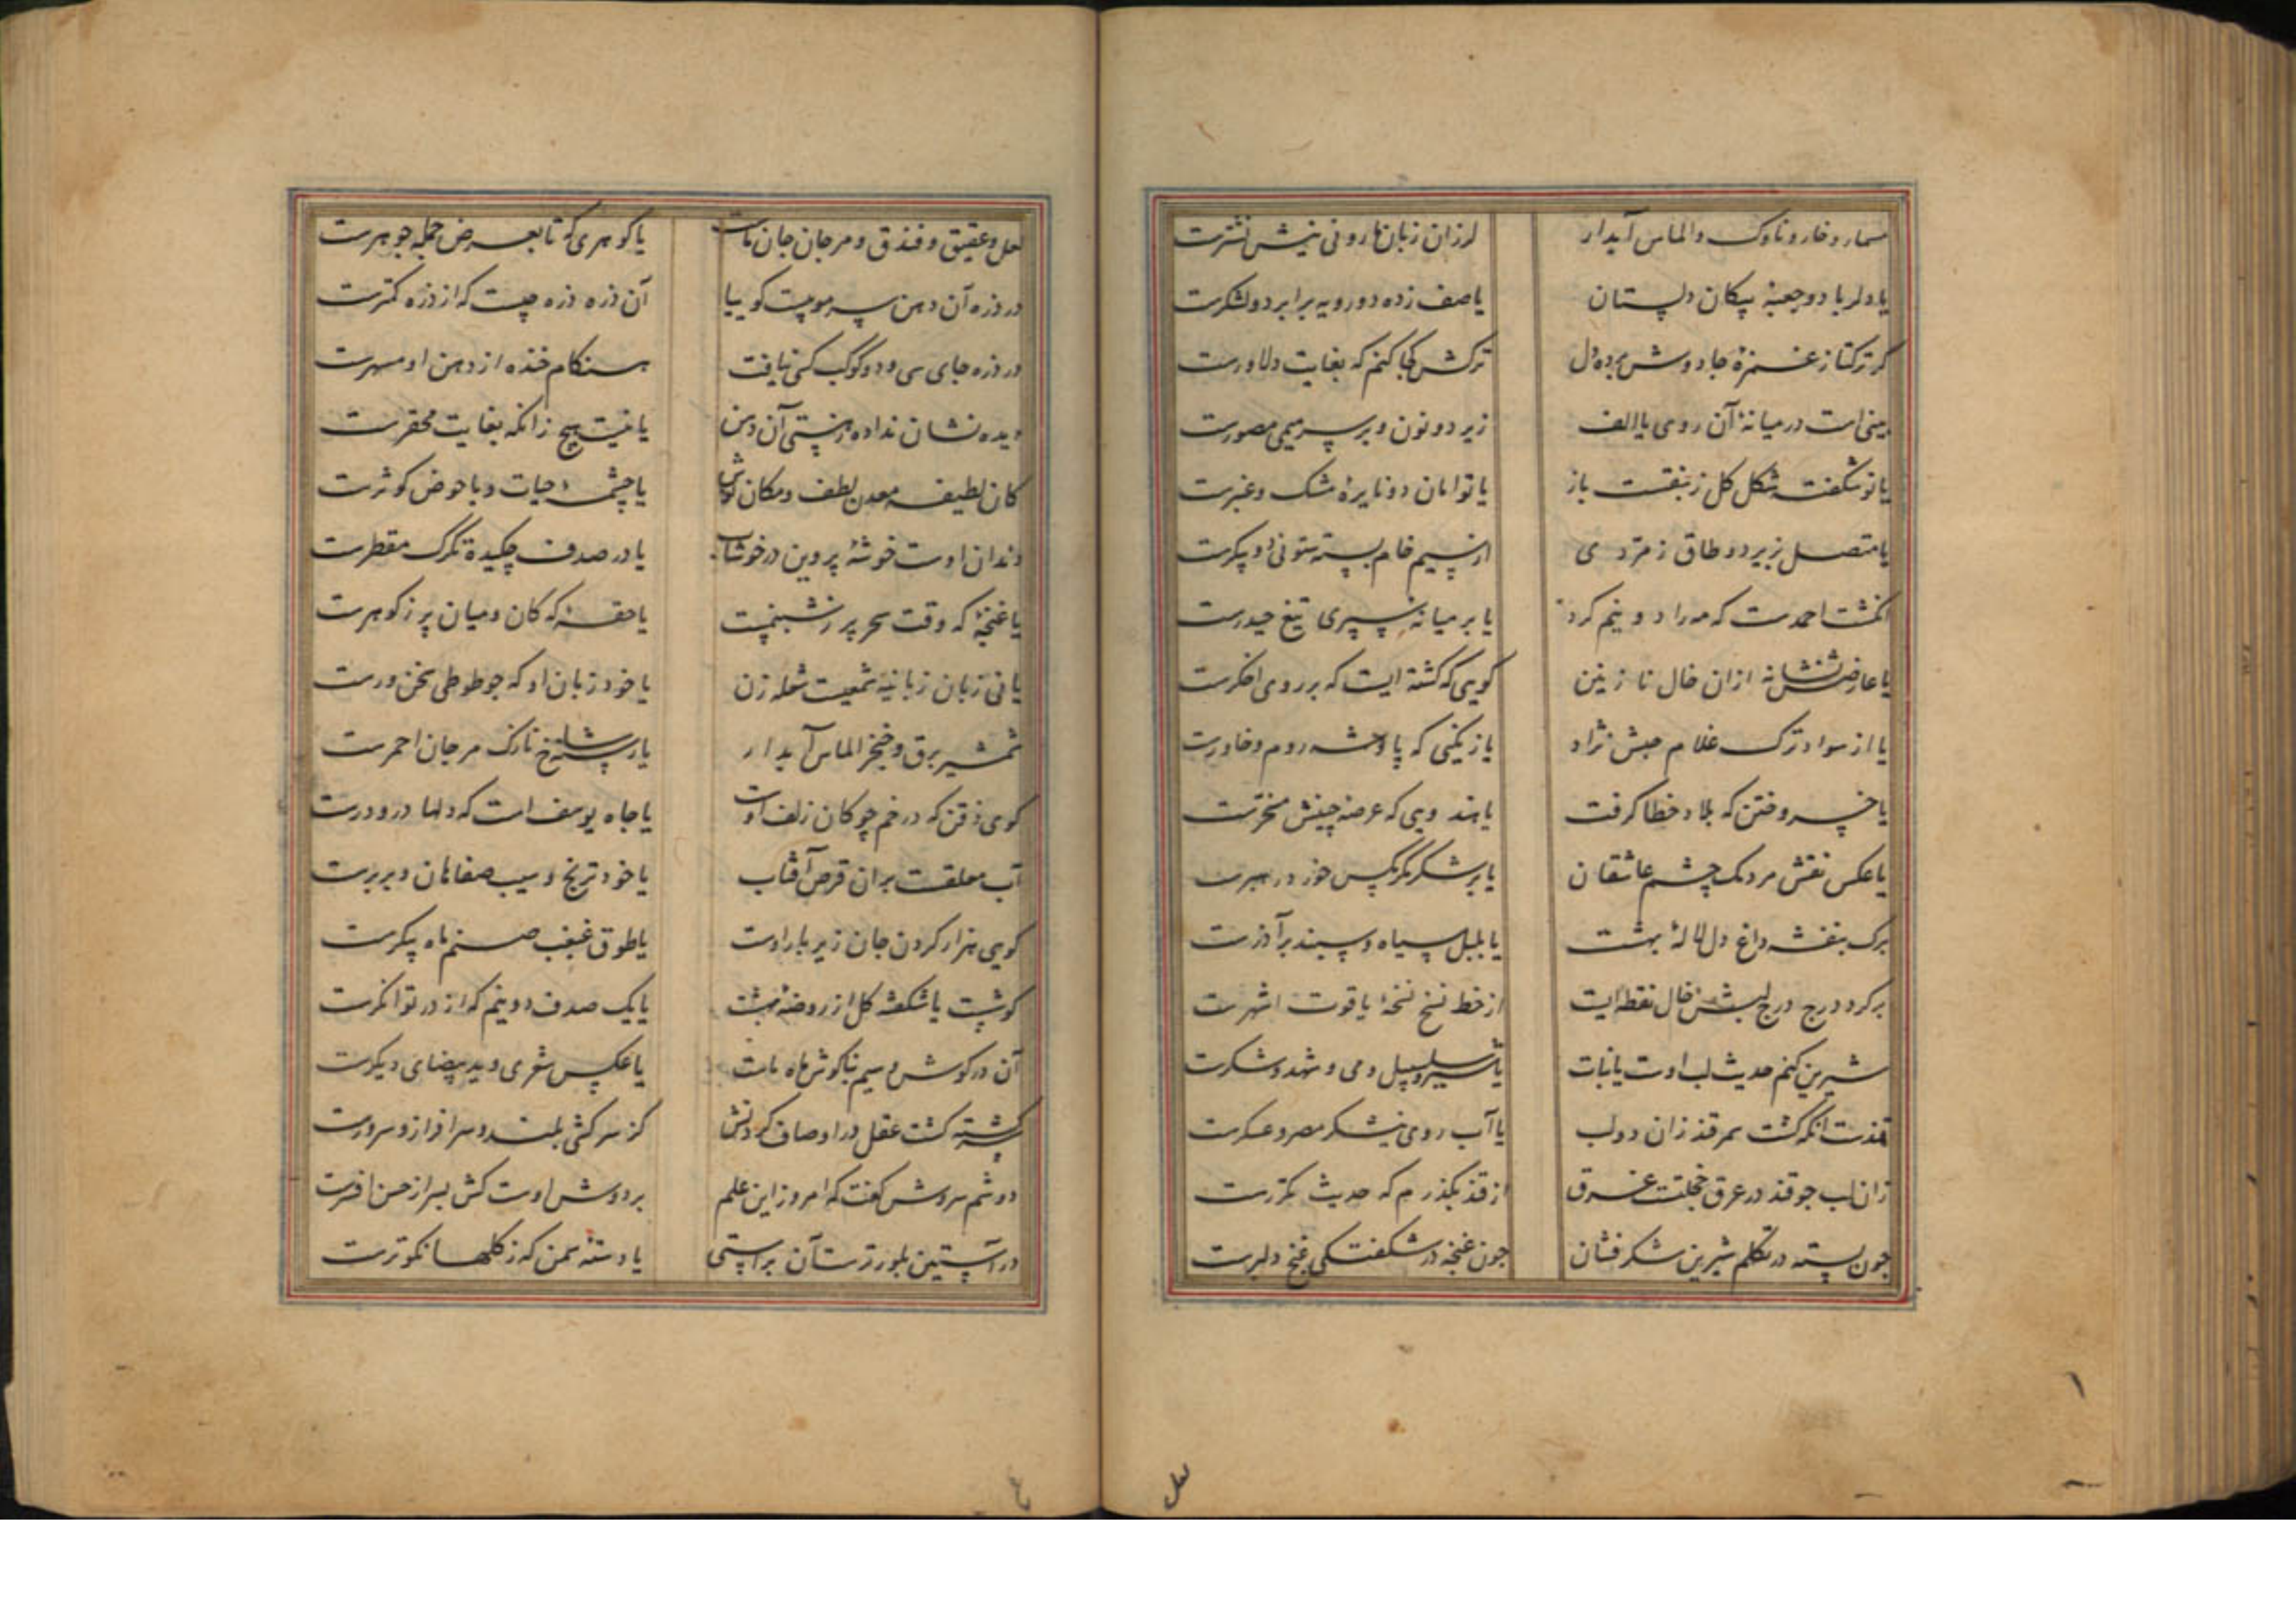 مسمار و خار و ناوک و الماس آبدار لرزان زبان مارو نی نیش نشترست
یا دلربا دو جعبهٔ پیکان دلستان یا صف زده دو رویه برابر دو لشکرست
کر ترکتاز غمزهٔ جادوش برد دل ترکش کجا کنم که بغایت دلاورست
بینی است در میانهٔ آن روی یا الف زیر دو نون و بر سر میمی مصورست
یا نو شکفته شکل کل زنبقست باز یا توامان دو نایرهٔ مشک و عنبرست
یا متصل بزیر دو طاق زمردی از سیم خام بسته ستونی دو پیکرست
انکشت احمدست که مه را دو نیم کرد یا بر میانهٔ سپری تیغ حیدرست
یا عارضش نشانه ازان خال نازنین کویی که کشته ایست که بر روی اخکرست
یا از سواد ترک غلام حبش نژاد یا زنکیی که پادشه روم و خاورست
یا خسرو ختن که بلاد خطا کرفت یا هندویی که عرصهٔ چینش مسخرست
یا عکس نقش مردمک چشم عاشقان یا بر شکر مکر مکس خوز در
برک بنفشه داغ دل لالهٔ بهشت یا بلبل سیاه و سپند بر آذرست
بر کرد درج درج لبش خال نقطه ایست از خط نسخ نسخهٔ یاقوت اشهرست
شیرین کنم حدیث لب اوست یا نبات یا سلسبیل و می و شهد و شکرست
قندست انکه کشت سمرقند زان دو لب یا آب روی نیشکر مصر و عسکرست
زان لب جو قند در عرق خجلتست غرق از قند بکذرم که حدیث مکررست
جون پسته در تکلم شیرین شکر فشان جون غنچه در شکفتکی غنج دلبرست
لعل
لعل و عقیق و فندق و مرجان جان ماست یا کوهری که تابع عرض جمله جوهرست
در ذره آن دهن سر موییست کوییا آن ذره ذره چیست که از ذره کمترست
در ذره جای سی و دو کوکب کسی نیافت هنکام خنده از دهن او
دیده نشان نداده ز هستی آن دهن یا نیست هیچ زانکه بغایت محقرست
کان لطیفه معدن لطف و مکان نوش یا چشمهٔ حیات و یا حوض کوثرست
دندان اوست خوشهٔ پروین در خوشاب یا در صدف چکیدهٔ تکرک مقطرست
یا غنچهٔ که وقت سحر پر ز شبنمست یا حقه که کان و میان پر ز کوهرست
یا نی زبان زبانیهٔ شمعیست شعله زن یا خود زبان او که جو طوطی سخن ورست
شمشیر برق و خنجر الماس آبدار یا رسته شاخ نازک مرجان احمرست
کوی ذقن که در خم چوکان زلف اوست یا چاه یوسف است که دلها درو درست
آب معلقست بران قرص آفتاب یا خود ترنج و سیب صفاهان و بربرست
کویی هزار کردن جان زیر بار اوست یا طوق غبغب صنم ماه پیکرست
کوشست یا شکفته کل از روضهٔ بهشت یا یک صدف دو نیم که از در توانکرست
آن در کوش و سیم بناکوش ماه ماست یا عکس شعری و ید بیضای دیکرست
کشته کشت عقل در اوصاف کردنش کز سرکشی بلند و سرافراز و سرورست
دوشم سروش کفت که امروز این علم بر دوش اوست کش بسر از حسن افسرست
در آستین بلورترست آن براستی یا دستهٔ سمن که ز کلها نکوترست